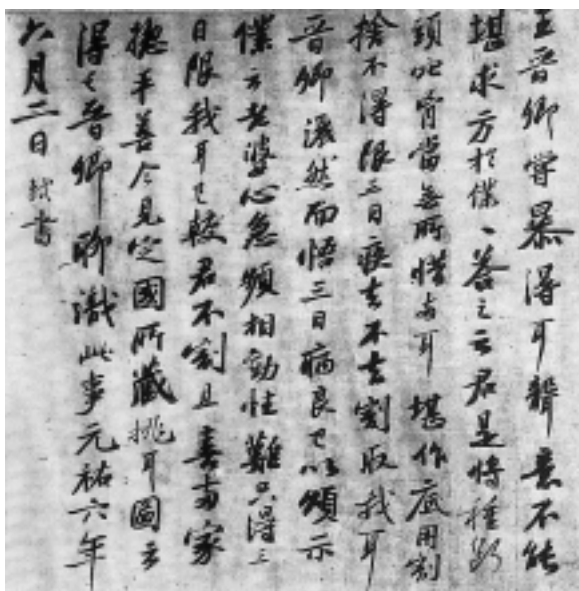 王晉卿嘗暴得耳聾意不能
堪求方於僕〻答之云君是將種斷
頭穴胷當無所惜兩耳堪作底用割
捨不得限三日疾去不去割取我耳
晉卿灑然而悟三日病良已以頌示
僕云老婆心急頻相勸性難只得三
日限我耳已較君不割且喜兩家
揔平善今見定國所藏挑耳圖云
得之晉卿聊識此事元祐六年
六月二日軾書